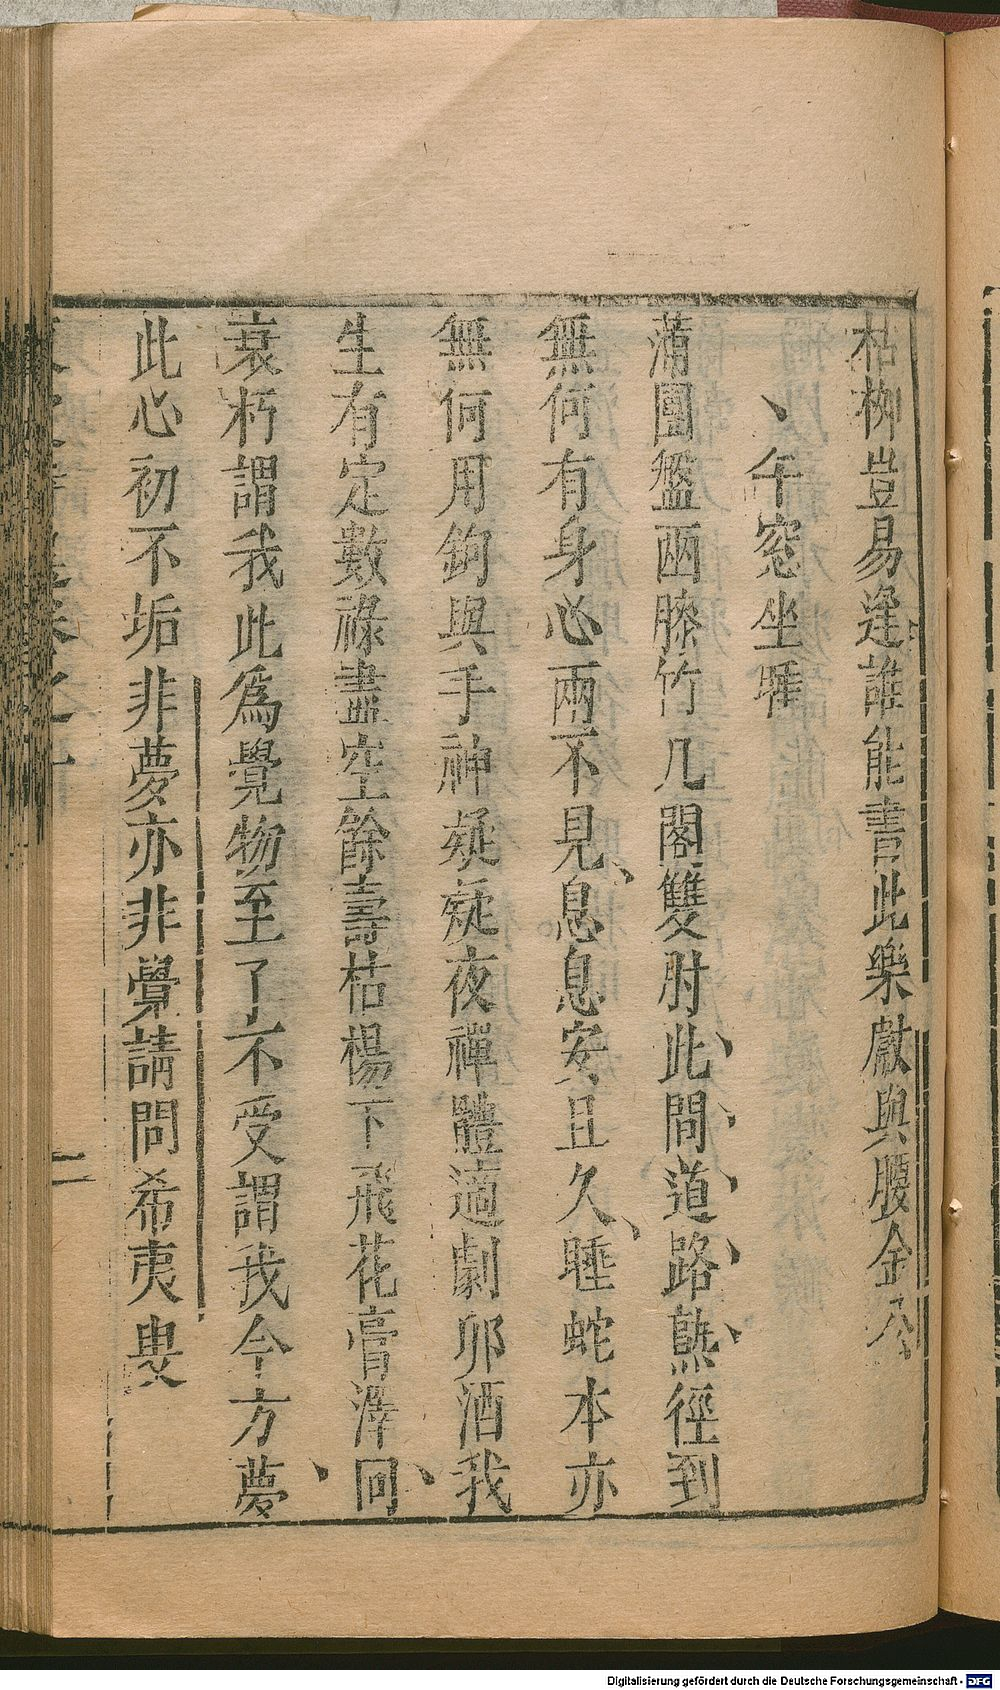 枯栁豈易逢誰能書此樂獻與腰金公
午窓坐睡
蒲團盤兩膝竹几閣雙肘此間道路熟徑到
無何有身心兩不見息息安且久睡蛇本亦
無何用鉤與手神凝疑夜禪體適劇卯酒我
生有定數祿盡空餘壽枯楊下飛花膏澤回
衰朽謂我此爲覺物至了不受謂我今方夢
此心初不垢非夢亦非覺請問希夷叟
二
Digitalisierung gefördert durch die Deutsche Forschungsgemeinschaft - DFG